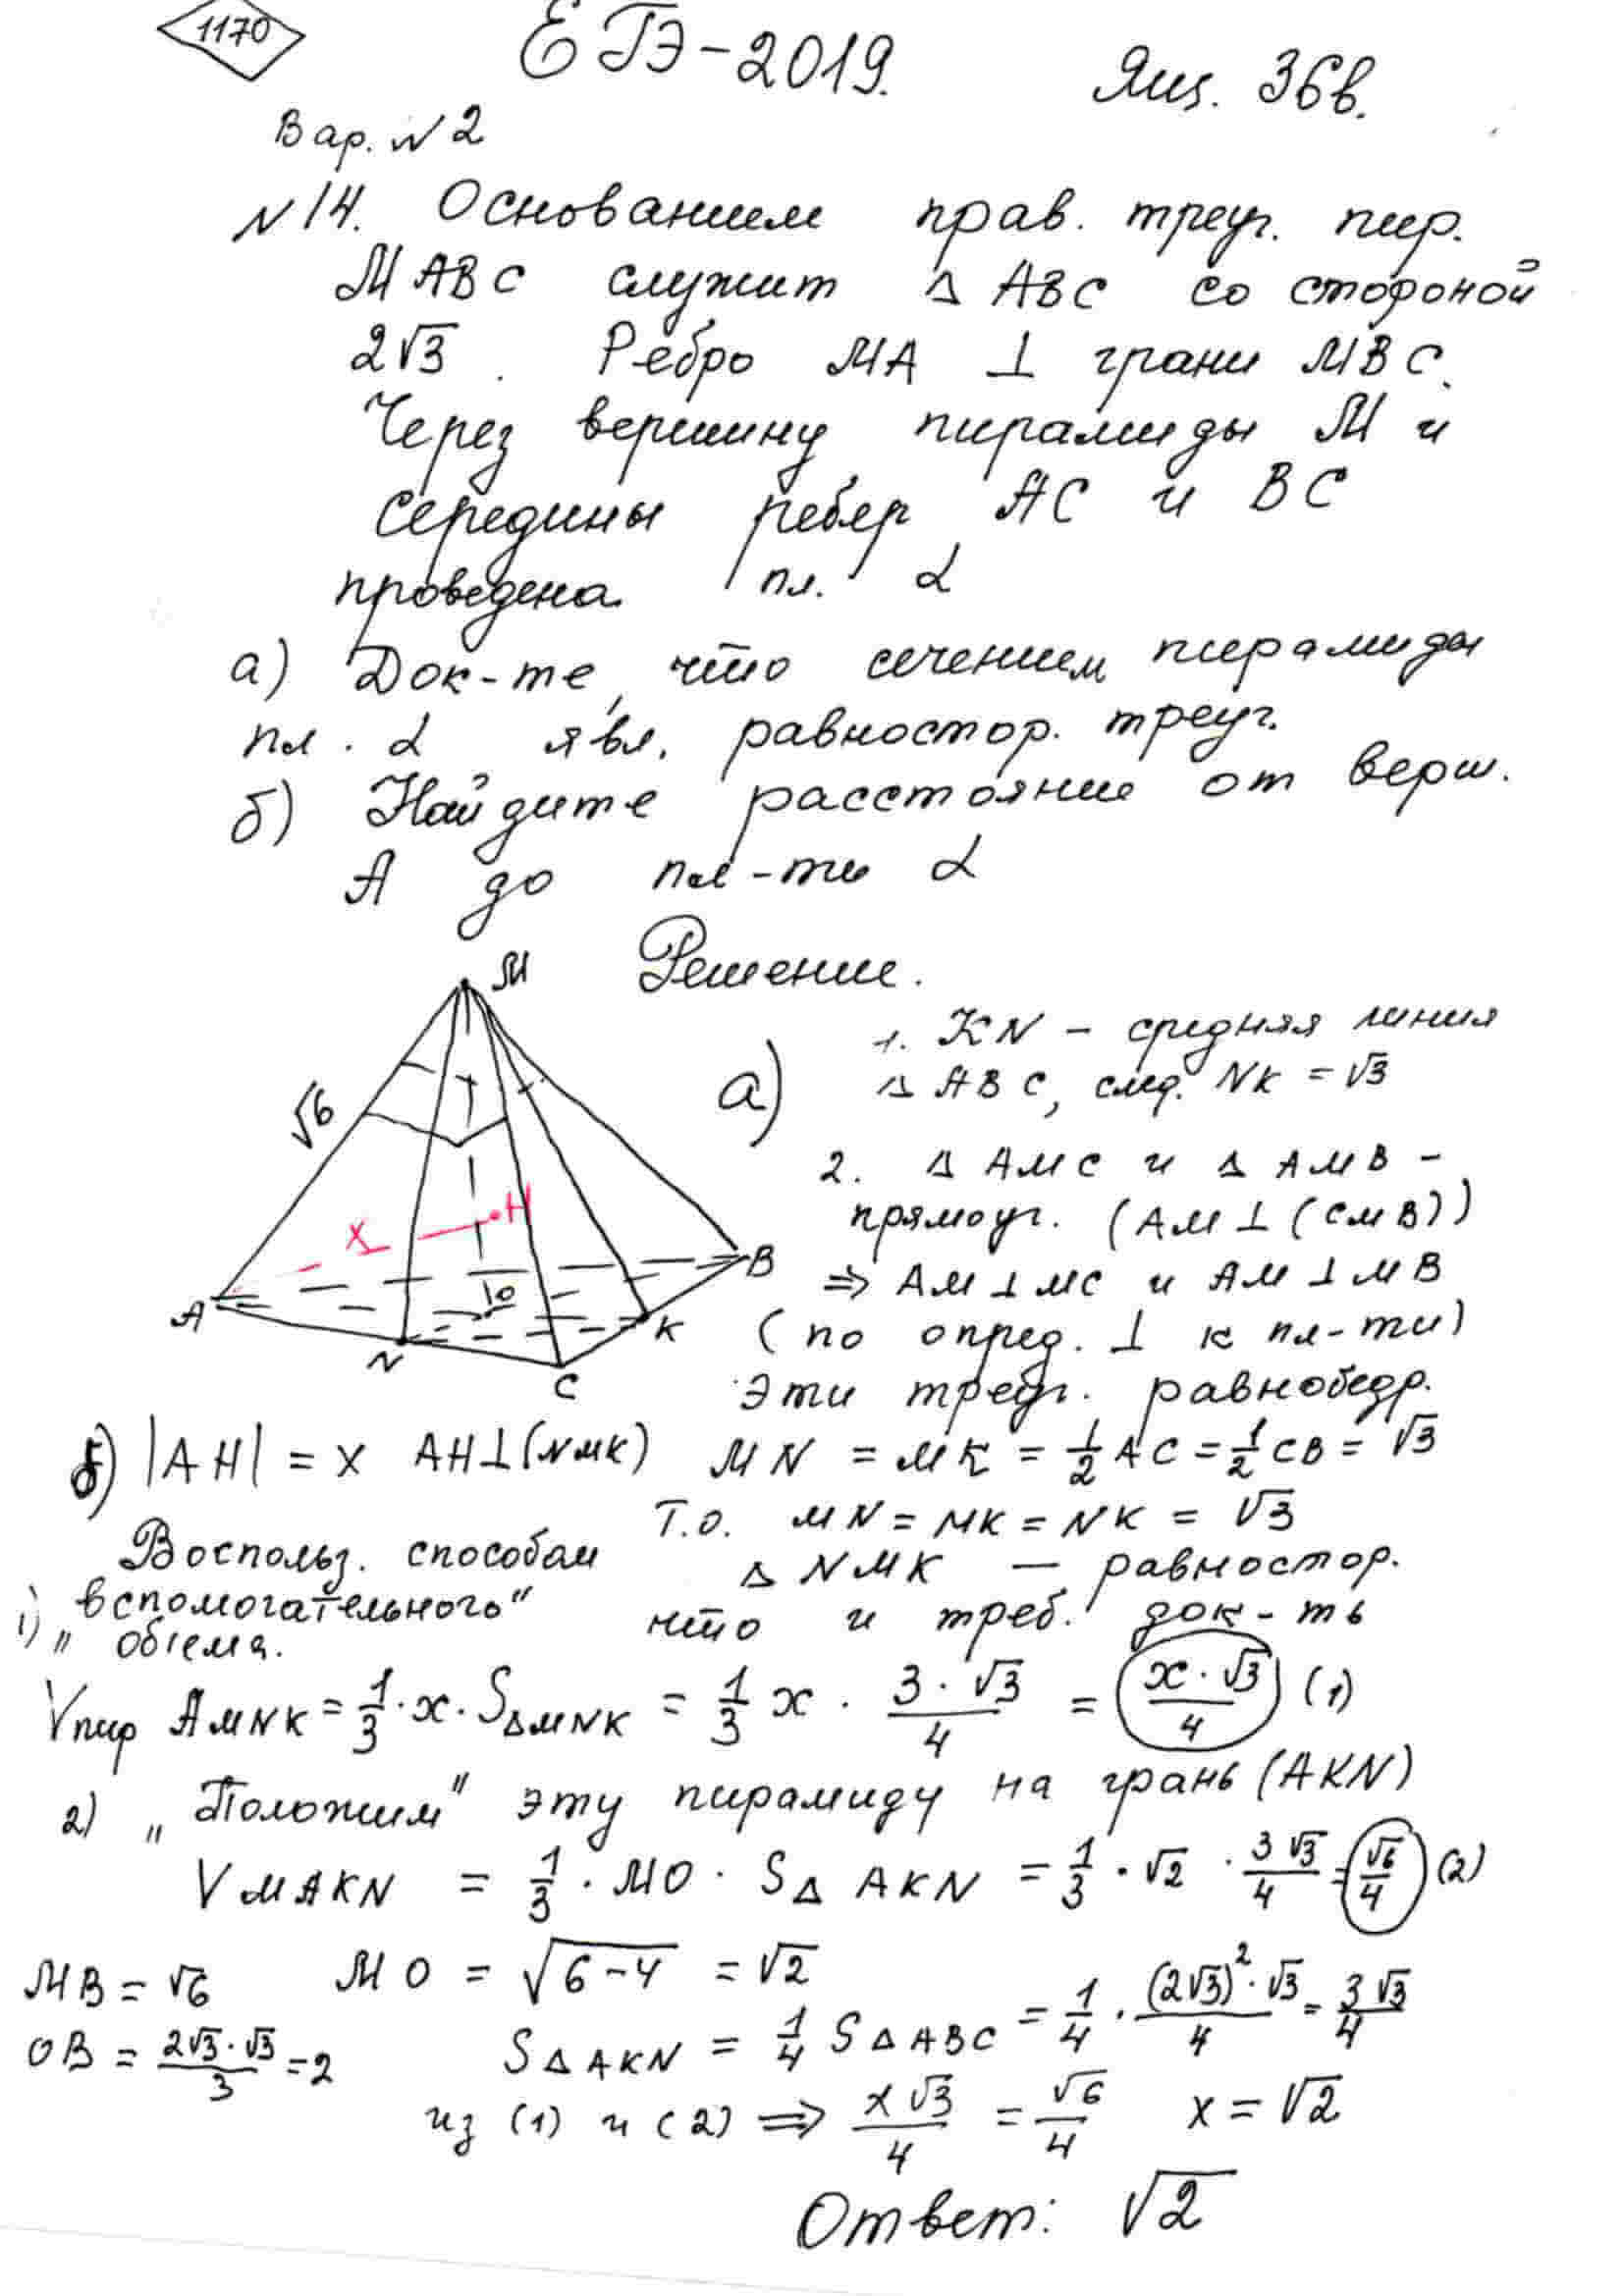 1170
ЕГЭ-2019.
Ящ. 36в.
Вар. N 2
N 14. Основанием прав. треуг. пир.
МАВС служит Δ АВС со стороной
2√3. Ребро МА ⊥ грани МВС.
Через вершину пирамиды М и
середины ребер АС и ВС
проведена пл. α
а) Док-те, что сечением пирамиды
пл. α явл. равностор. треуг.
б) Найдите расстояние от верш.
А до пл-ти α
Решение.
М
√6
X
H
A
O
B
N
K
C
а) 1. KN – средняя линия
Δ АВС, след. NK = √3
2. Δ АМС и Δ АМВ –
прямоуг. (АМ ⊥ (СМВ))
⇒ АМ ⊥ МС и АМ ⊥ МВ
(по опред. ⊥ к пл-ти)
Эти треуг. равнобедр.
MN = MK = 1/2 AC = 1/2 CB = √3
Т.о. MN = MK = NK = √3
Δ NMK — равностор.
что и треб. док-ть
б) |AH| = x AH ⊥ (NMK)
Воспольз. способом
1) „вспомогательного"
объема.
Vпир AMNK = 1/3 · x · SΔMNK = 1/3 x · 3·√3/4 = x·√3/4 (1)
2) „Положим" эту пирамиду на грань (AKN)
VMAKN = 1/3 · MO · SΔ AKN = 1/3 · √2 · 3√3/4 = √6/4 (2)
MB = √6 MO = √(6-4) = √2
OB = 2√3·√3/3 = 2
SΔAKN = 1/4 SΔABC = 1/4 · (2√3)²·√3/4 = 3√3/4
из (1) и (2) ⇒ x√3/4 = √6/4 x = √2
Ответ: √2